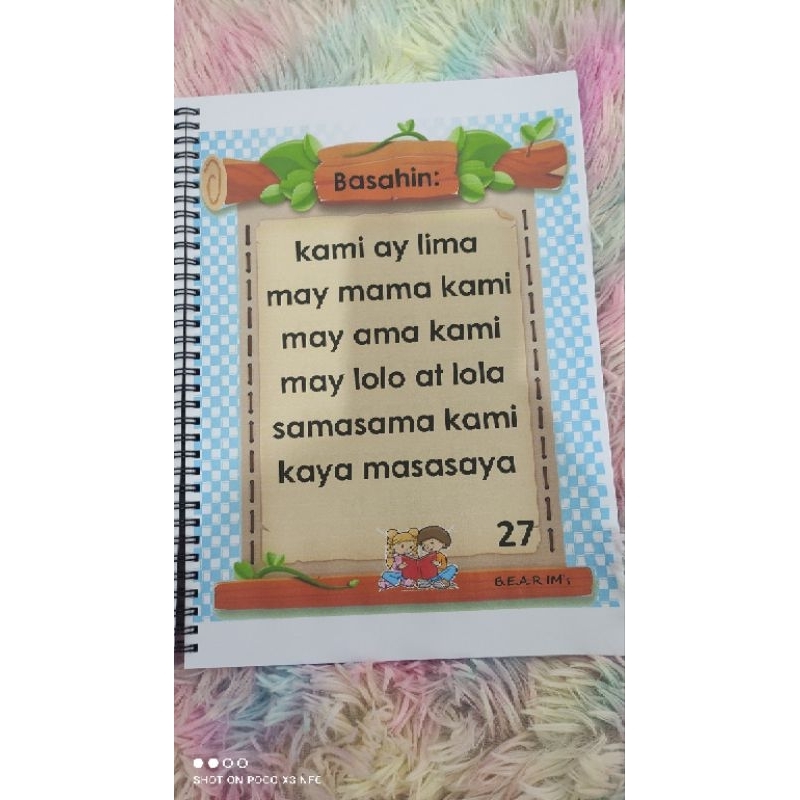 Basahin:
kami ay lima
may mama kami
may ama kami
may lolo at lola
samasama kami
kaya masasaya
27
B.E.A.R IM's
SHOT ON POCO X3 NFC